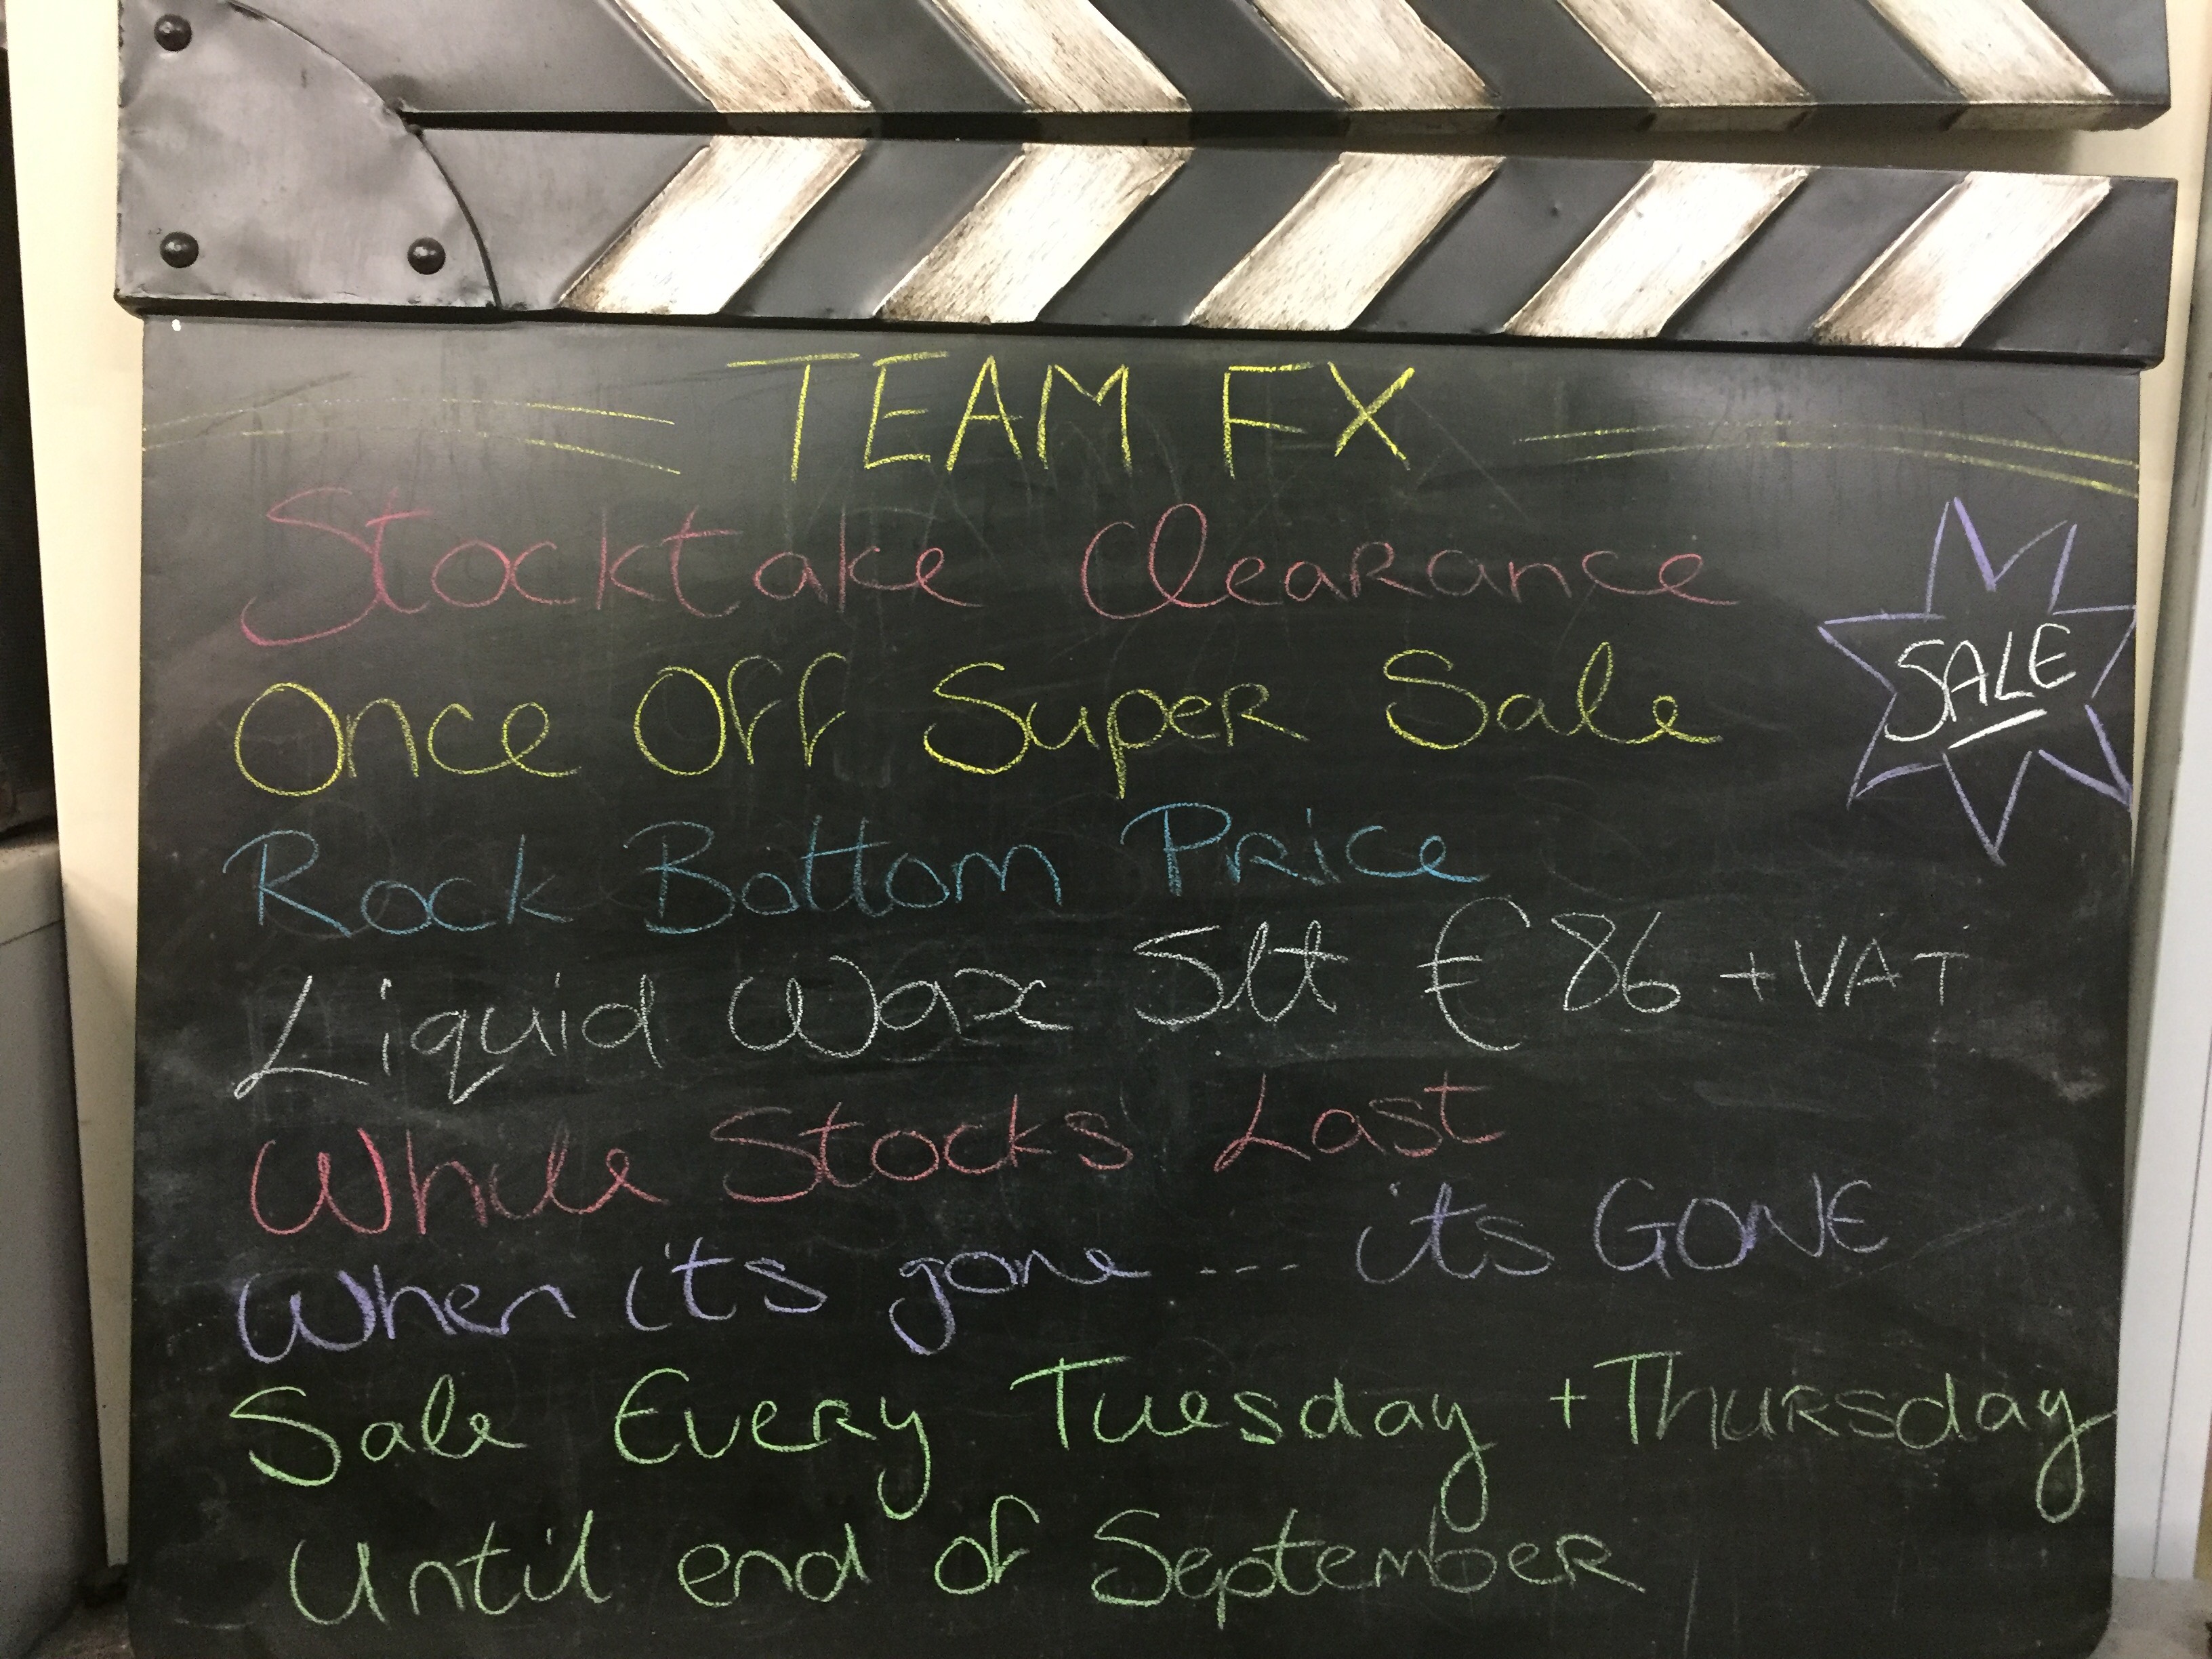 TEAM FX
Stocktake Clearance
Once Off Super Sale
SALE
Rock Bottom Price
Liquid Wax 5lt €86 +VAT
While Stocks Last
When it's gone --- it's GONE
Sale Every Tuesday + Thursday
Until end of September